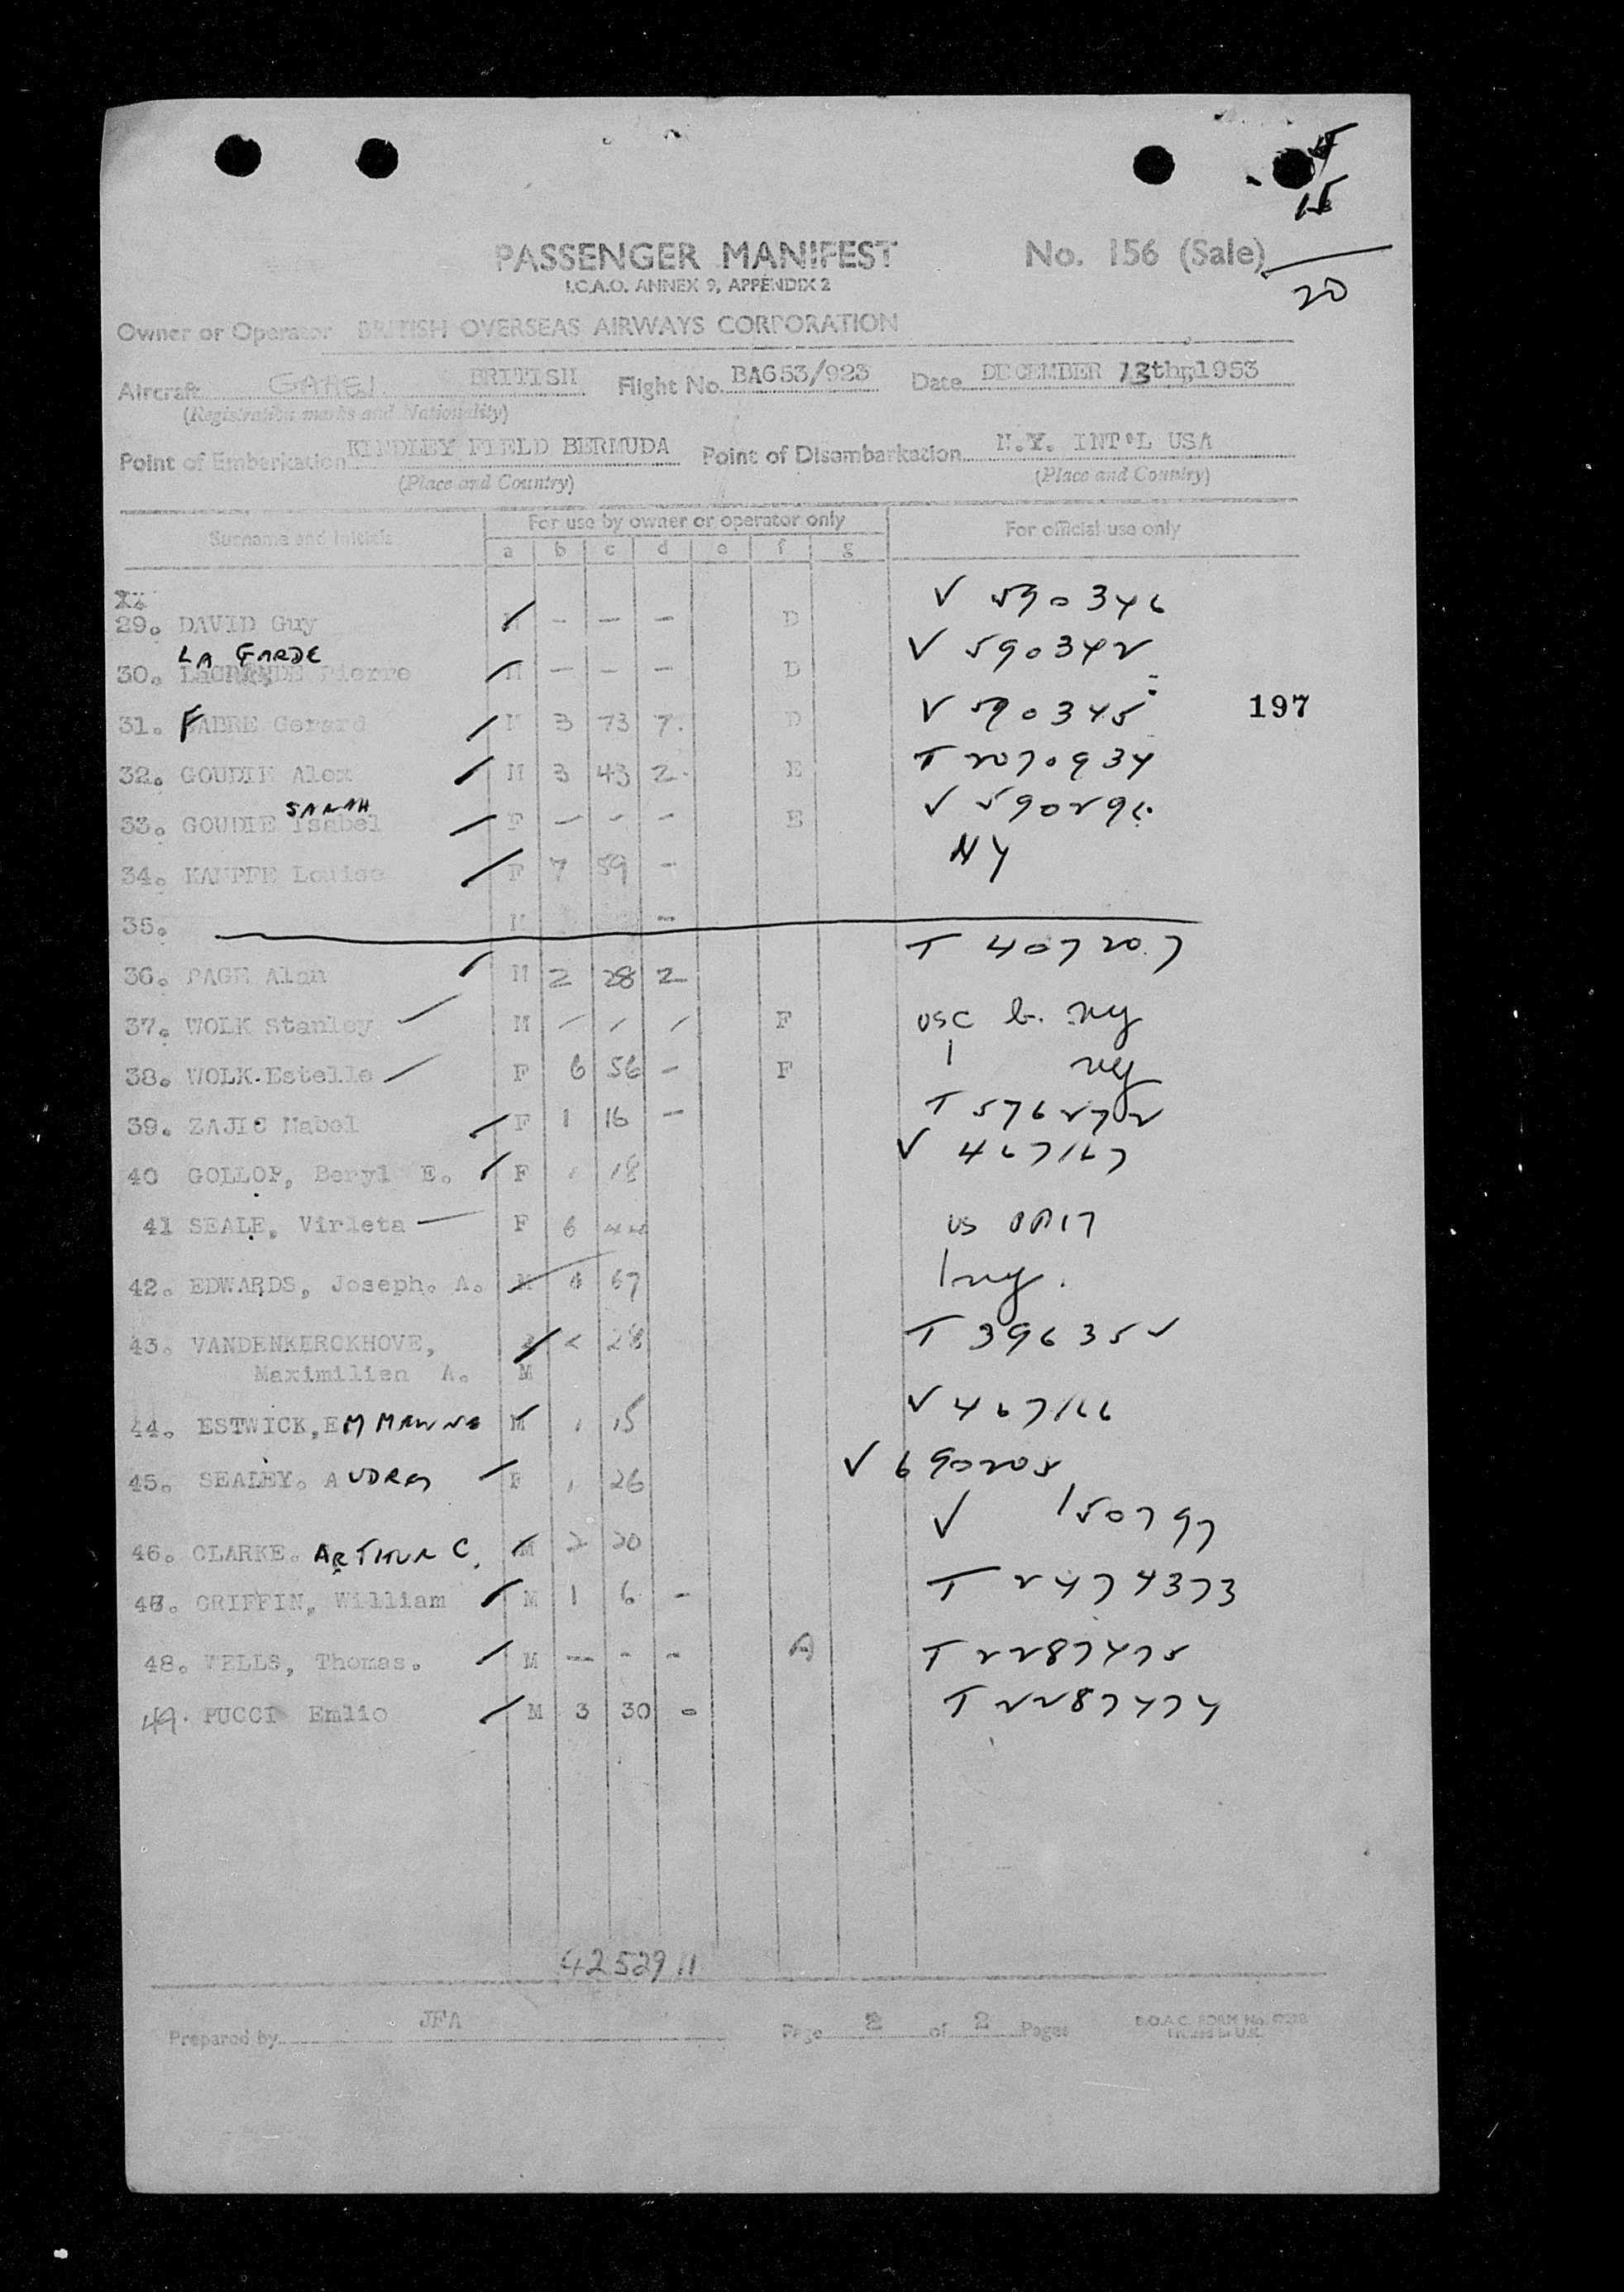 15
20
PASSENGER MANIFEST No. 156 (Sale)
I.C.A.O. ANNEX 9, APPENDIX 2
Owner or Operator BRITISH OVERSEAS AIRWAYS CORPORATION
Aircraft BRITISH Flight No. BA653/923 Date DECEMBER 13th,1953
(Registration marks and Nationality)
Point of Embarkation KINDLEY FIELD BERMUDA Point of Disembarkation N.Y. INT'L USA
(Place and Country) (Place and Country)
Surname and Initials For use by owner or operator only For official use only
a b c d e f g
29. DAVID Guy M - - - D V 590346
LA GARDE
30. Pierre M - - - D V 590342
31. FABRE Gerard M 3 73 7. D V 590345
197
32. GOUDIE Alex M 3 43 2. E T 2070934
SARAH
33. GOUDIE Isabel F - - - E V 590296
34. KAMPFE Louise F 7 59 - NY
35. M -
36. PAGE Alan M 2 28 2 T 407207
37. WOLK Stanley M / / / F USC b. NY
38. WOLK Estelle F 6 56 - F NY
39. ZAJIC Mabel F 1 16 - T 576272
40 GOLLOP, Beryl E. F 1 18 V 467167
41 SEALE, Virleta F 6 44 US
42. EDWARDS, Joseph. A. M 67 NY.
43. VANDENKERCKHOVE, 2 28 T 396352
Maximilien A. M
44. ESTWICK, M 1 15 V 467166
45. SEALEY. F 1 26 V 690205
46. CLARKE. ARTHUR C. M 2 20 V 150797
47. GRIFFIN, William M 1 6 - T 2474373
48. WELLS, Thomas. M - - - A T 2287475
49. PUCCI Emlio M 3 30 - T 2287474
42 529 11
Prepared by JFA Page 2 of 2 Pages B.O.A.C. FORM No.